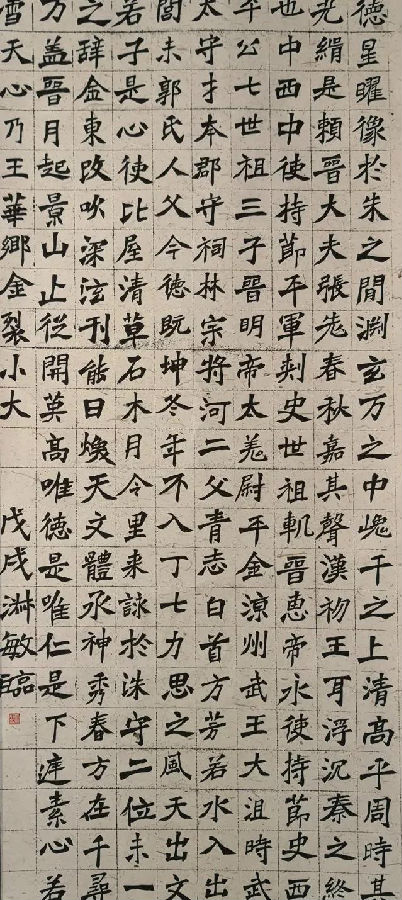 德星曜像於朱之閒淵玄万之中巋千之上清高平周時其
光緝是賴晉大夫張老春秋嘉其聲漢初王耳浮沉秦之終
也中西中使持節平軍刾史世祖軌晉惠帝永使持節史西
平公七世祖三子晉明帝太羌尉平金涼州武王大沮時武
太守才本郡守祠林宗將河二父青志白首方芳若水入出
閭未郭氏人父今德既坤冬年不入丁七力思之風天出文
若子是心使比屋清草石木月令里来詠於洙守二位未一
之辞金東改吹深泫刊能日煥天文體承神秀春方在千尋
万盖晉月起景山止從開英高唯德是唯仁是下逹素心若
雪天心乃王華鄉金裂小大
戊戌淋敏臨